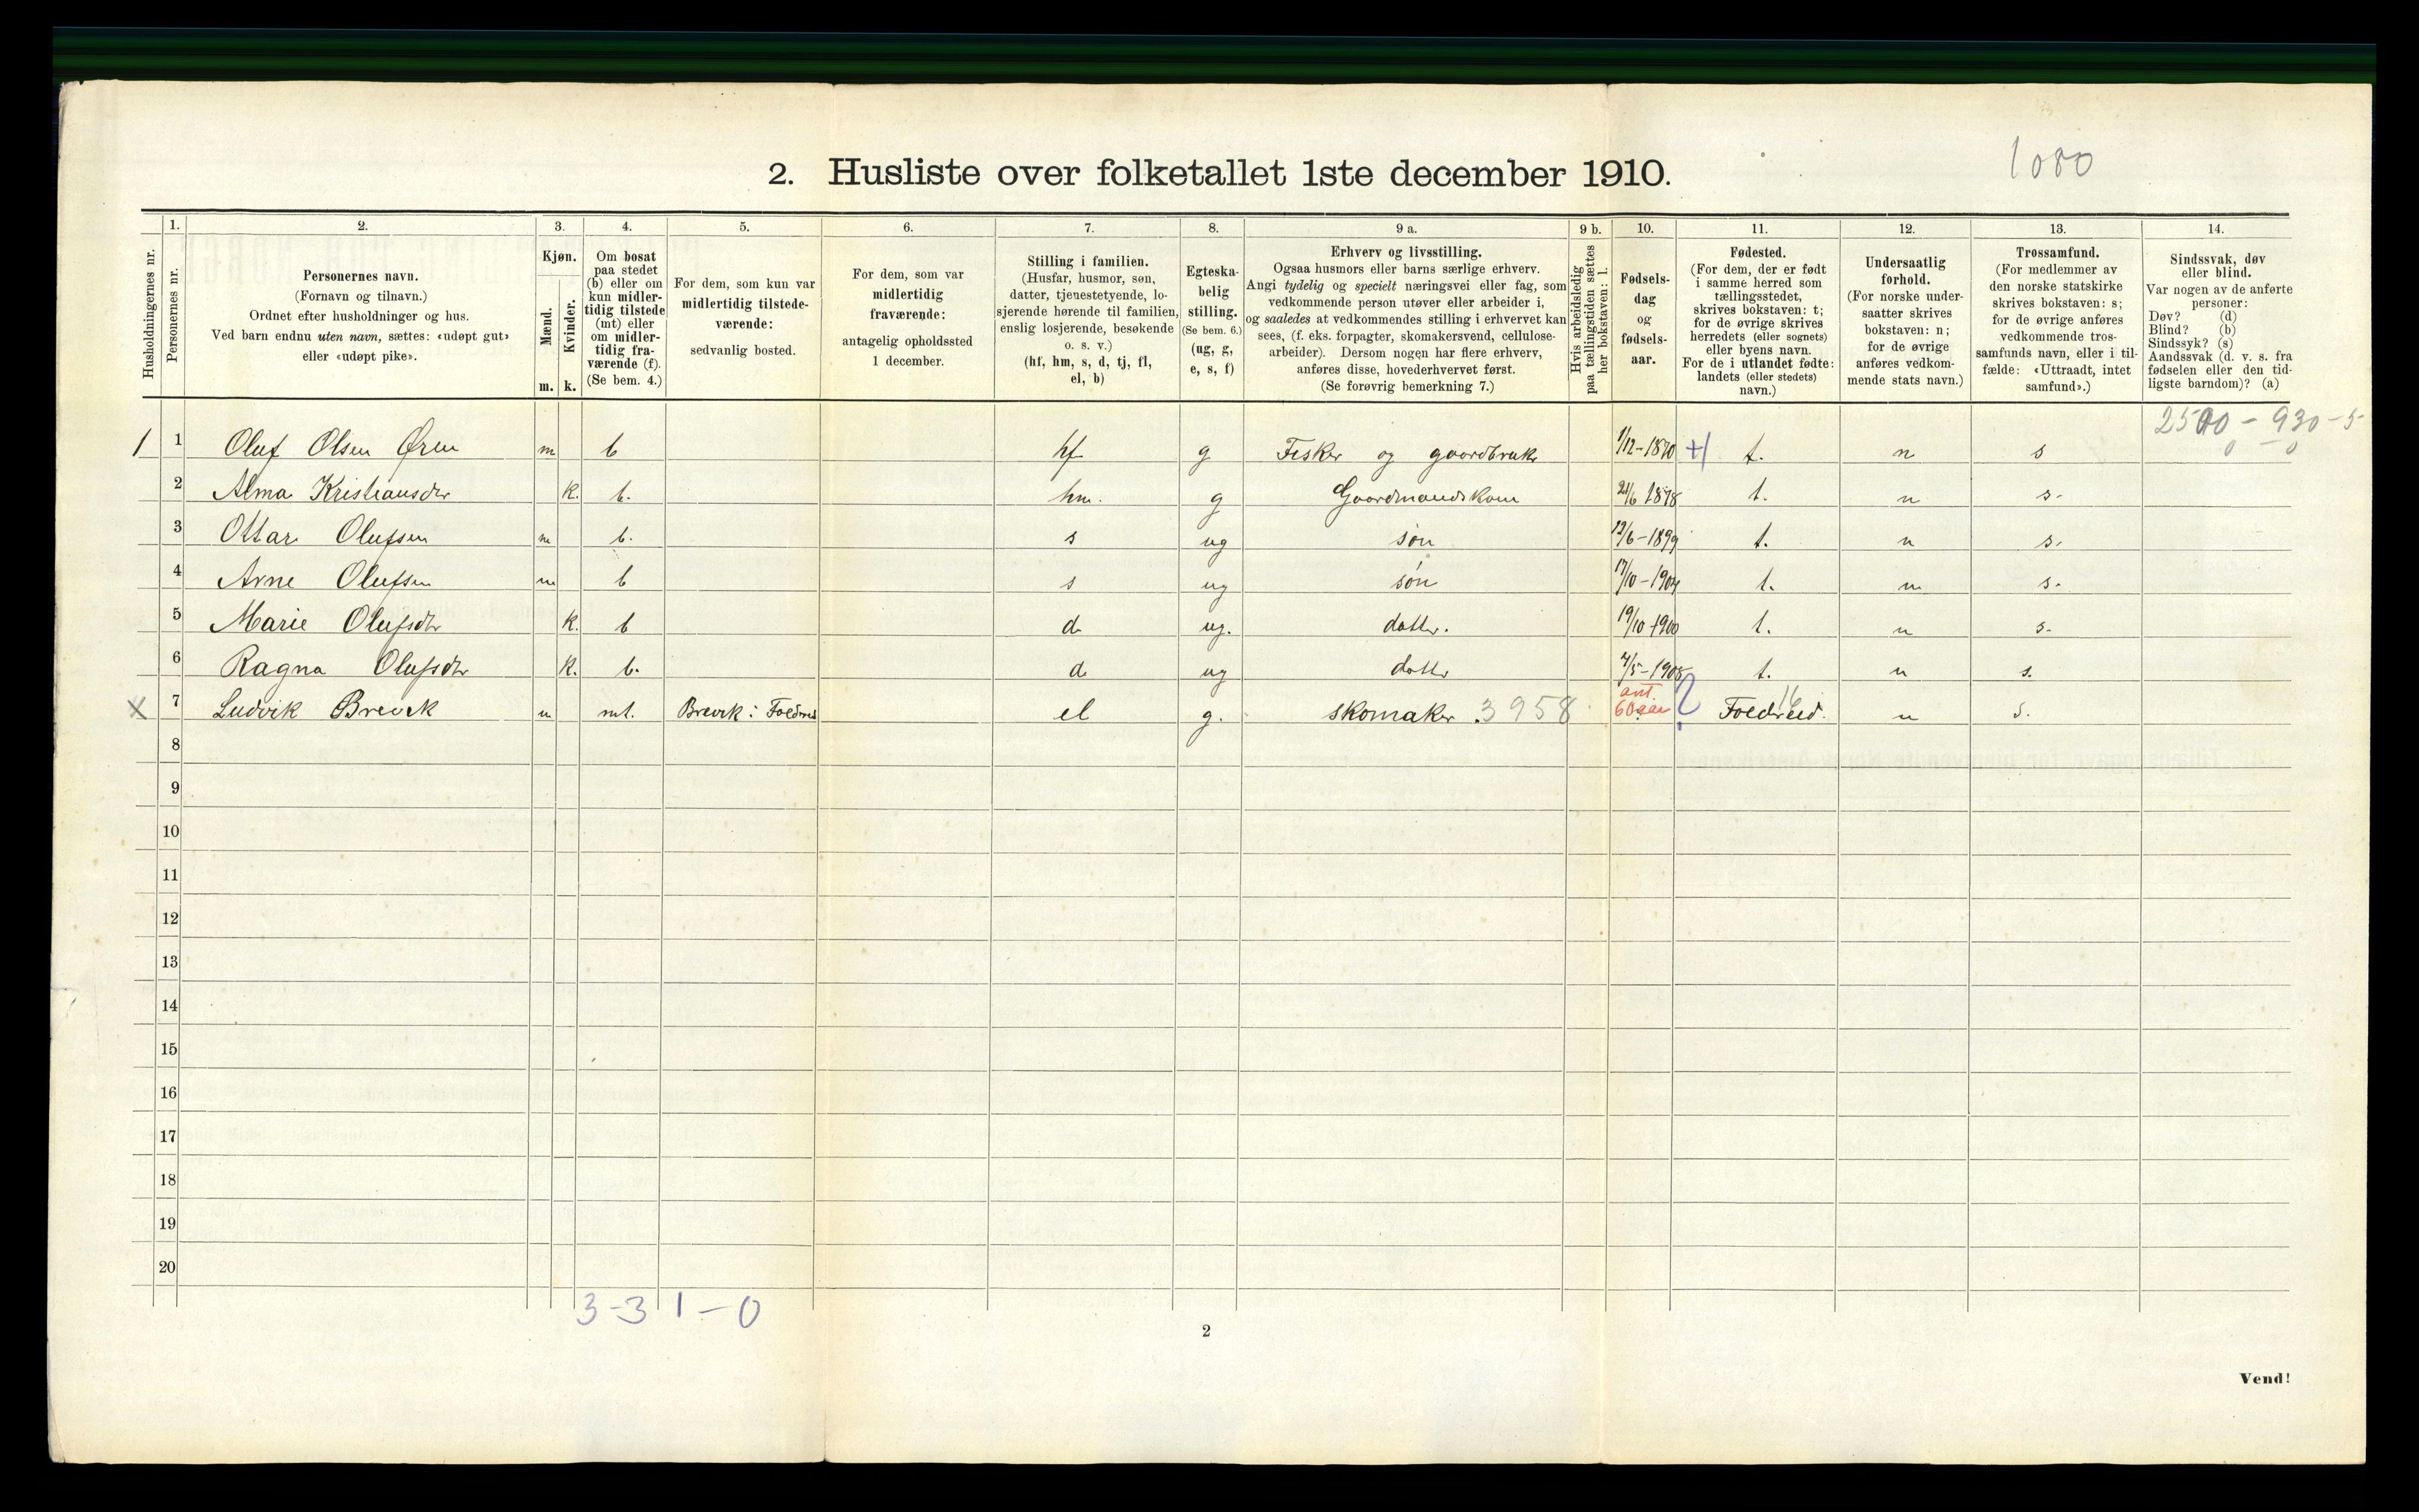 1080
2. Husliste over folketallet 1ste december 1910.
Husholdningernes nr.
1.
Personernes nr.
2.
Personernes navn.
(Fornavn og tilnavn.)
Ordnet efter husholdninger og hus.
Ved barn endnu uten navn, sættes: «udøpt gut»
eller «udøpt pike».
3.
Kjøn.
Mænd.
Kvinder.
m. k.
4.
Om bosat
paa stedet
(b) eller om
kun midler-
tidig tilstede
(mt) eller
om midler-
tidig fra-
værende (f).
(Se bem. 4.)
5.
For dem, som kun var
midlertidig tilstede-
værende:
sedvanlig bosted.
6.
For dem, som var
midlertidig
fraværende:
antagelig opholdssted
1 december.
7.
Stilling i familien.
(Husfar, husmor, søn,
datter, tjenestetyende, lo-
sjerende hørende til familien,
enslig losjerende, besøkende
o. s. v.)
(hf, hm, s, d, tj, fl,
el, b)
8.
Egteska-
belig
stilling.
(Se bem. 6.)
(ug, g,
e, s, f)
9 a.
Erhverv og livsstilling.
Ogsaa husmors eller barns særlige erhverv.
Angi tydelig og specielt næringsvei eller fag, som
vedkommende person utøver eller arbeider i,
og saaledes at vedkommendes stilling i erhvervet kan
sees, (f. eks. forpagter, skomakersvend, cellulose-
arbeider). Dersom nogen har flere erhverv,
anføres disse, hovederhvervet først.
(Se forøvrig bemerkning 7.)
9 b.
Hvis arbeidsledig
paa tællingstiden sættes
her bokstaven: l.
10.
Fødsels-
dag
og
fødsels-
aar.
11.
Fødested.
(For dem, der er født
i samme herred som
tællingsstedet,
skrives bokstaven: t;
for de øvrige skrives
herredets (eller sognets)
eller byens navn.
For de i utlandet fødte:
landets (eller stedets)
navn.)
12.
Undersaatlig
forhold.
(For norske under-
saatter skrives
bokstaven: n;
for de øvrige
anføres vedkom-
mende stats navn.)
13.
Trossamfund.
(For medlemmer av
den norske statskirke
skrives bokstaven: s;
for de øvrige anføres
vedkommende tros-
samfunds navn, eller i til-
fælde: «Uttraadt, intet
samfund».)
14.
Sindssvak, døv
eller blind.
Var nogen av de anførte
personer:
Døv? (d)
Blind? (b)
Sindssyk? (s)
Aandssvak (d. v. s. fra
fødselen eller den tid-
ligste barndom)? (a)
1 1 Oluf Olsen Øren m b hf g Fisker og gaardbruker 1/12-1870 t. n s
2 Alma Kristiansdtr k. b. hm. g Gaardmandskone 1878 t. n s.
3 Ottar Olufsen m b. s ug søn 12/6-1899 t. n s.
4 Arne Olufsen m b s ug søn 17/10-1904 t. n s.
5 Marie Olufsdtr k. b d ug. datter. 19/10-1900 t. n s.
6 Ragna Olufsdtr k. b. d ug datter 4/5-1908 t. n s.
x 7 Ludvik Brevik m mt. Brevik i Foldreid el g. skomaker. 3958 ant. 60 aar ? Foldreid. 16 n s.
8
9
10
11
12
13
14
15
16
17
18
19
20
3-3 1-0
2
Vend!